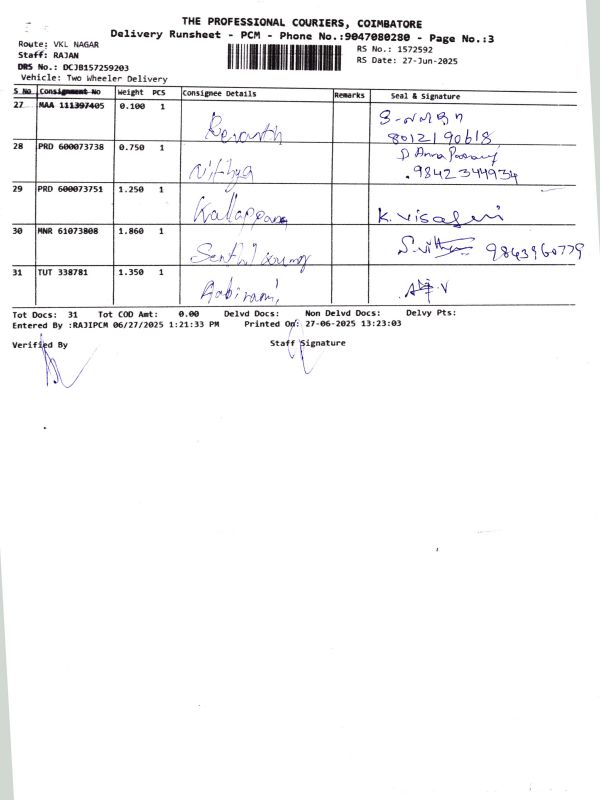 THE PROFESSIONAL COURIERS, COIMBATORE
Delivery Runsheet - PCM - Phone No.:9047080280 - Page No.:3
Route: VKL NAGAR
Staff: RAJAN
DRS No.: DCJB157259203
Vehicle: Two Wheeler Delivery
RS No.: 1572592
RS Date: 27-Jun-2025
S No Consignment No Weight PCS Consignee Details Remarks Seal & Signature
27 MAA 111397405 0.100 1
8012190618
28 PRD 600073738 0.750 1 Nithya
9842344934
29 PRD 600073751 1.250 1 Kallappana K. Visalini
30 MNR 61073808 1.860 1 Senthil kumar 9843960779
31 TUT 338781 1.350 1 Abirami
Tot Docs: 31 Tot COD Amt: 0.00 Delvd Docs: Non Delvd Docs: Delvy Pts:
Entered By :RAJIPCM 06/27/2025 1:21:33 PM Printed On: 27-06-2025 13:23:03
Verified By Staff Signature